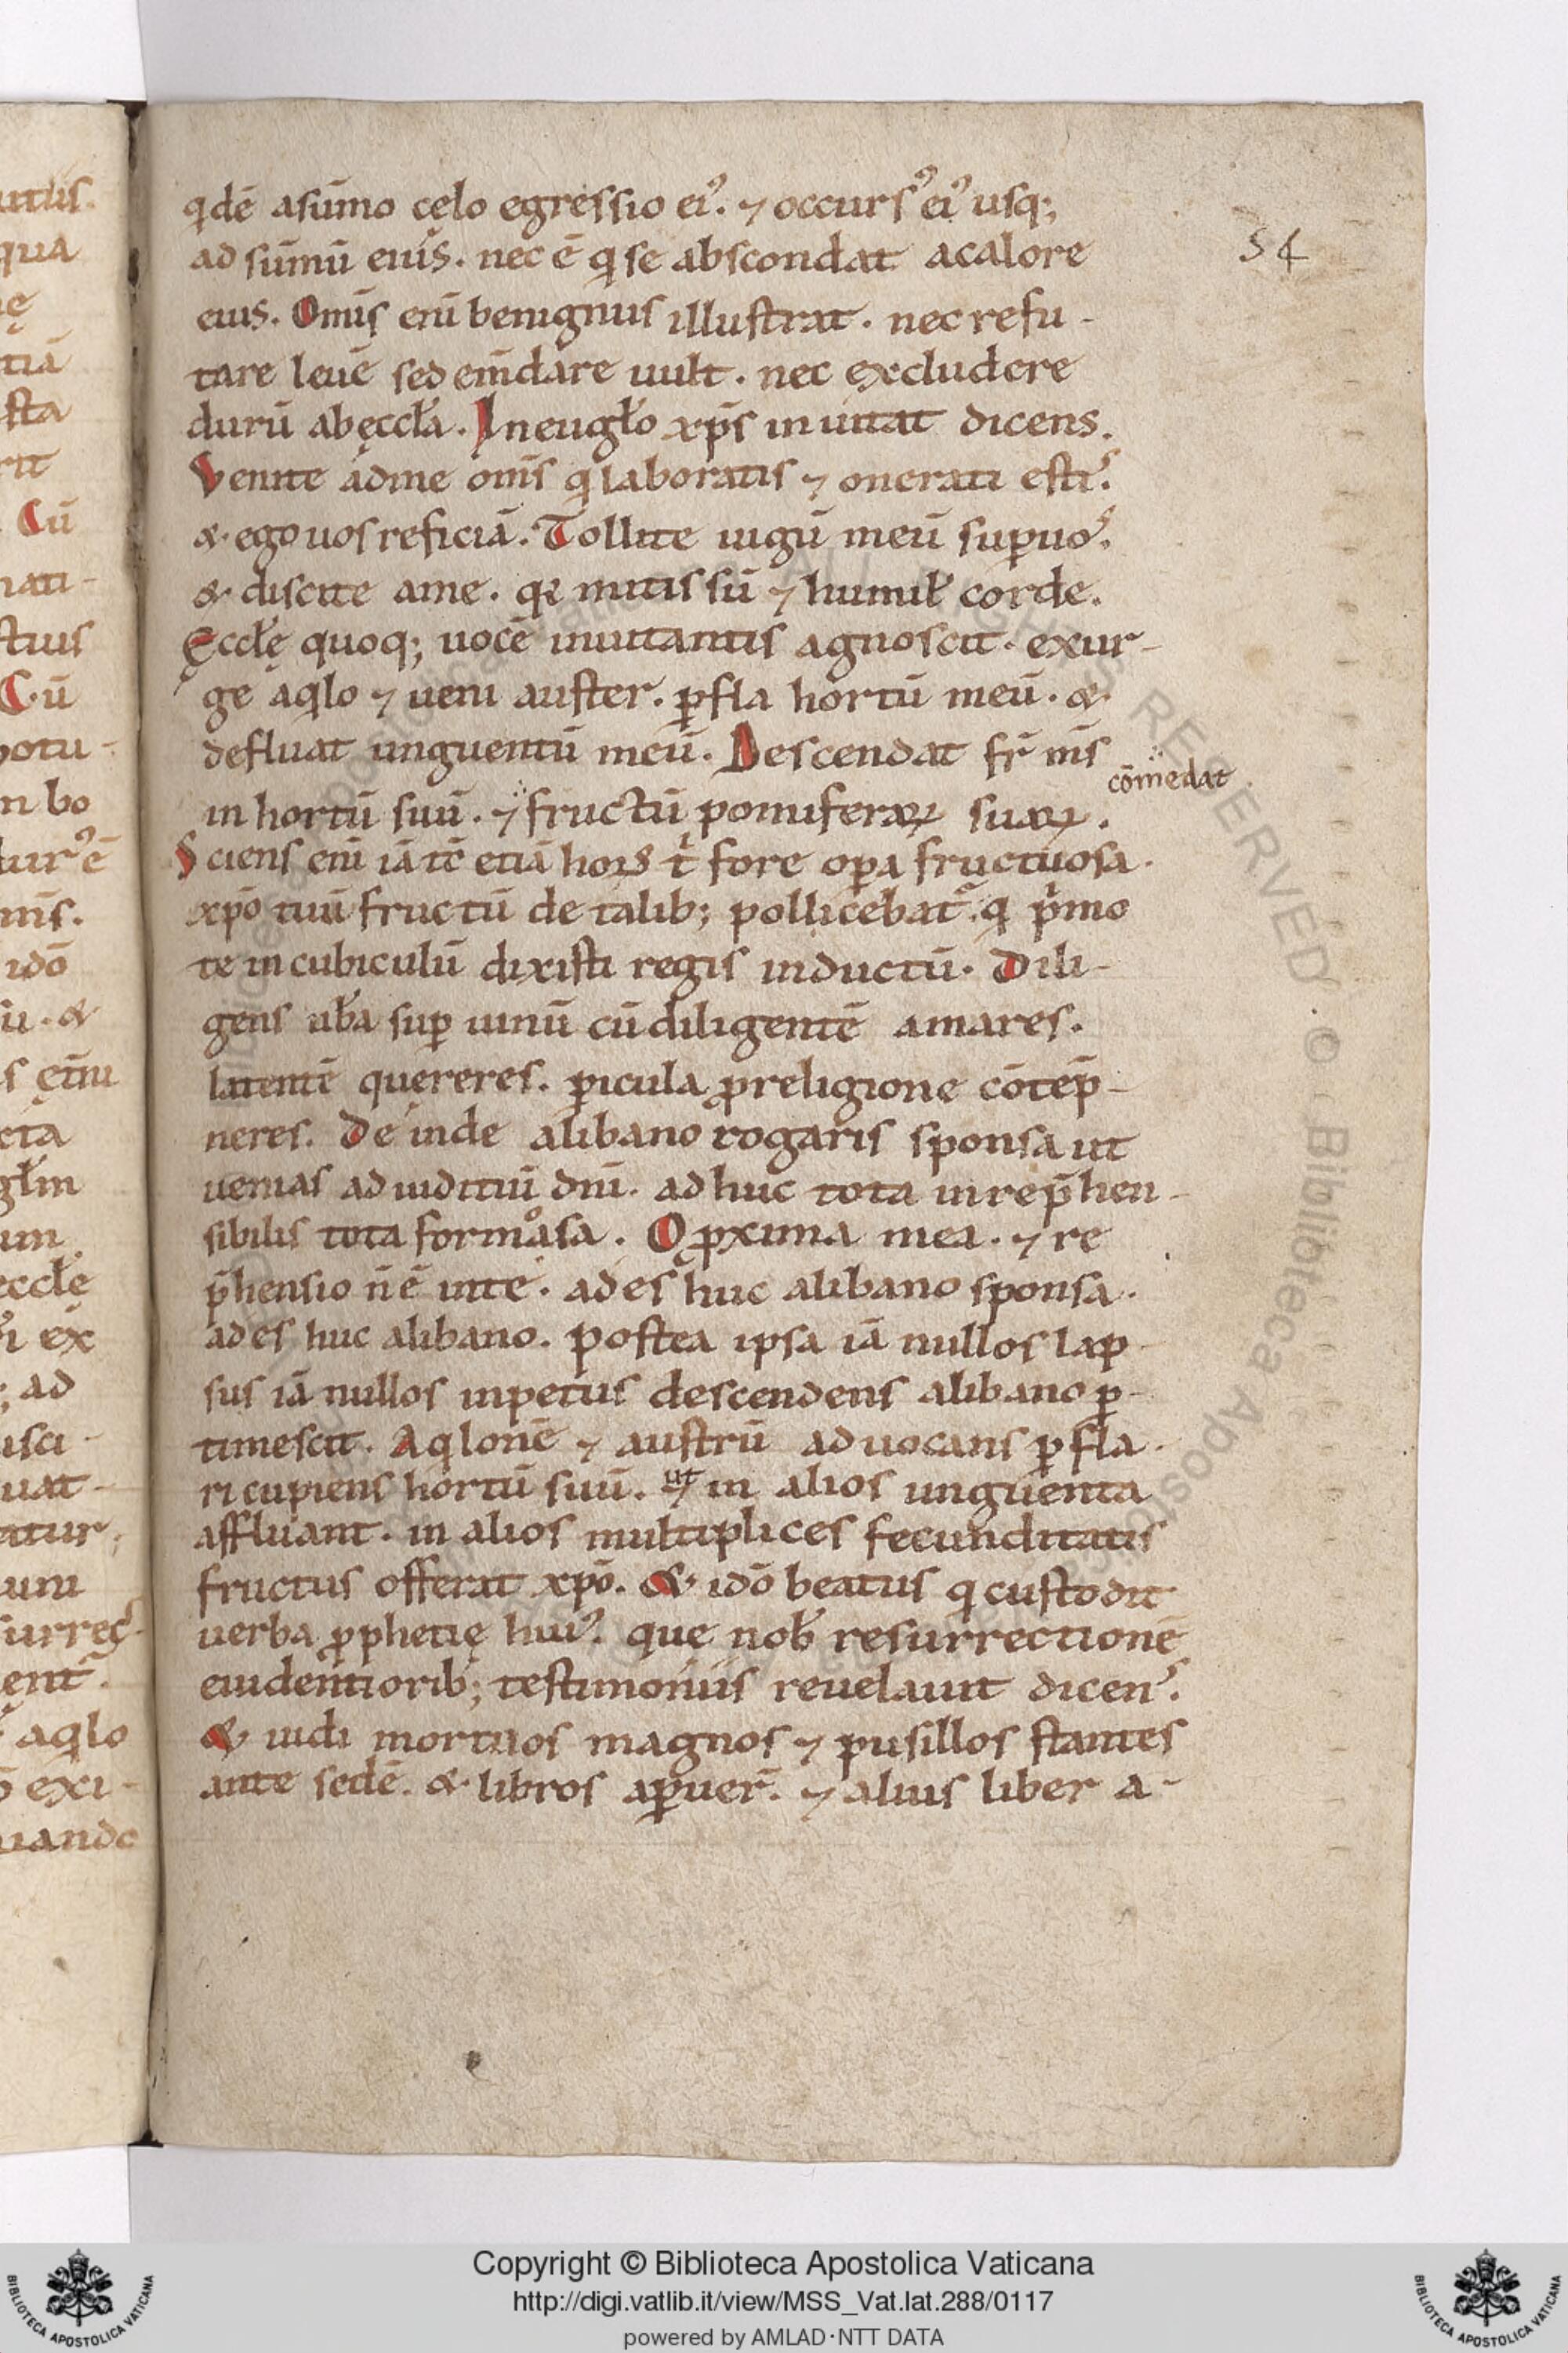 qdē asūmo cęlo egressio ei᾿. ⁊ occurs᾿ ei᾿ usq;
ad sūmū eius. nec ē q se abscondat acalore
eius. Omīs enī benignus illustrat. nec refu-
tare leuē sed emdare uult. nec excludere
durū abęccła. Ineugło xp̄s inuitat dicens.
Venite adme omīs q laboratis ⁊ onerati esti᾿.
& ego uos reficiā. Tollite iugū meū suꝑuos.
& discite ame. qꝛ mitis sū ⁊ humił corde.
Ęccłę quoq; uocē inuitantis agnoscit. exur-
ge aqlo ⁊ ueni auster. ꝑfla hortū meū. &
defluat unguentū meū. Descendat fr̄ m̄s
cōmedat
in hortū suū. ⁊ fructū pomiferaꝝ suaꝝ.
Sciens enī iā tc̄ etiā hoꝝ t̄ fore oꝑa fructuosa.
xp̄o tuū fructū de talib; pollicebat᾿. q pͥmo
te in cubiculū dixisti regis inductū. Dili-
gens ub̄a suꝑ uinū cū diligentē amares.
latentē quęreres. ꝑicula ꝓreligione cōtep̄-
neres. De inde alibano rogaris sponsa ut
uenias ad iuditiū dnī. ad huc tota inrep̄hen-
sibilis tota formosa. O ꝓxima mea. ⁊ re
p̄hensio n̄ ē inte. ades huc alibano sponsa.
ades huc alibano. postea ipsa iā nullos lap-
sus iā nullos inpetus descendens alibano ꝑ-
timescit. Aqlonē ⁊ austrū aduocans ꝑfla-
ri cupiens hortū suū. ut ⁊ in alios unguenta
affluant. in alios multiplices fecunditatis
fructus offerat xp̄o. & idō beatus q custodit
uerba ꝓphetię hui᾿. que nob̄ resurrectionē
euidentiorib; testimoniis reuelauit dicen᾿.
& uidi mortuos magnos ⁊ pusillos stantes
ante sedē. & libros aꝑuer̄. ⁊ alius liber a-
54
utiis.
qua
tiā
sta
rit
Cū
nati-
stuis
Cū
potu-
m bo
m̄s.
idō
ū. &
cta
głm
un
ęccłę
ex
; ad
isci-
uat-
atur
uni
surrec-
ent᾿.
aqlo
exi-
uando
Copyright © Biblioteca Apostolica Vaticana
http://digi.vatlib.it/view/MSS_Vat.lat.288/0117
powered by AMLAD·NTT DATA
BIBLIOTECA APOSTOLICA VATICANA
BIBLIOTECA APOSTOLICA VATICANA